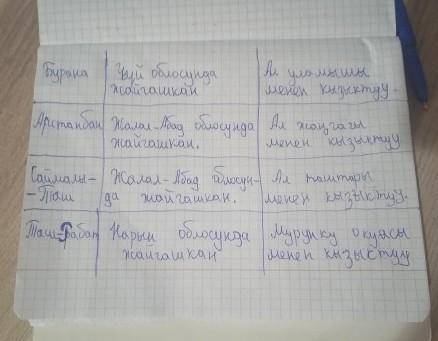 Бурана
Чүй облосунда
жайгашкан
Ал уламышы
менен кызыктуу.
Арстанбап
Жалал-Абад облосунда
жайгашкан.
Ал жаңгагы
менен кызыктуу
Саймалы-
-Таш
Жалал-Абад облосун-
да жайгашкан.
Ал таштары
менен кызыктуу.
Таш-Рабат
Нарын облосунда
жайгашкан
Мурунку окуясы
менен кызыктуу